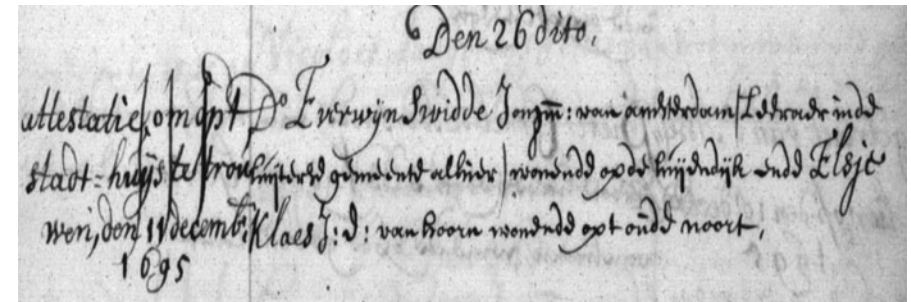 Den 26 dito.
attestatie, om opt
stadt=huijs te trou
wen, den 11 decemb:
1695
Do Everwijn Swidde Jongm: van amsterdam / Leeraer inde
luijterse gemeente alhier / wonende op de luijendijk ende Elsje
Klaes J: d: van hoorn wonende opt oude noort,